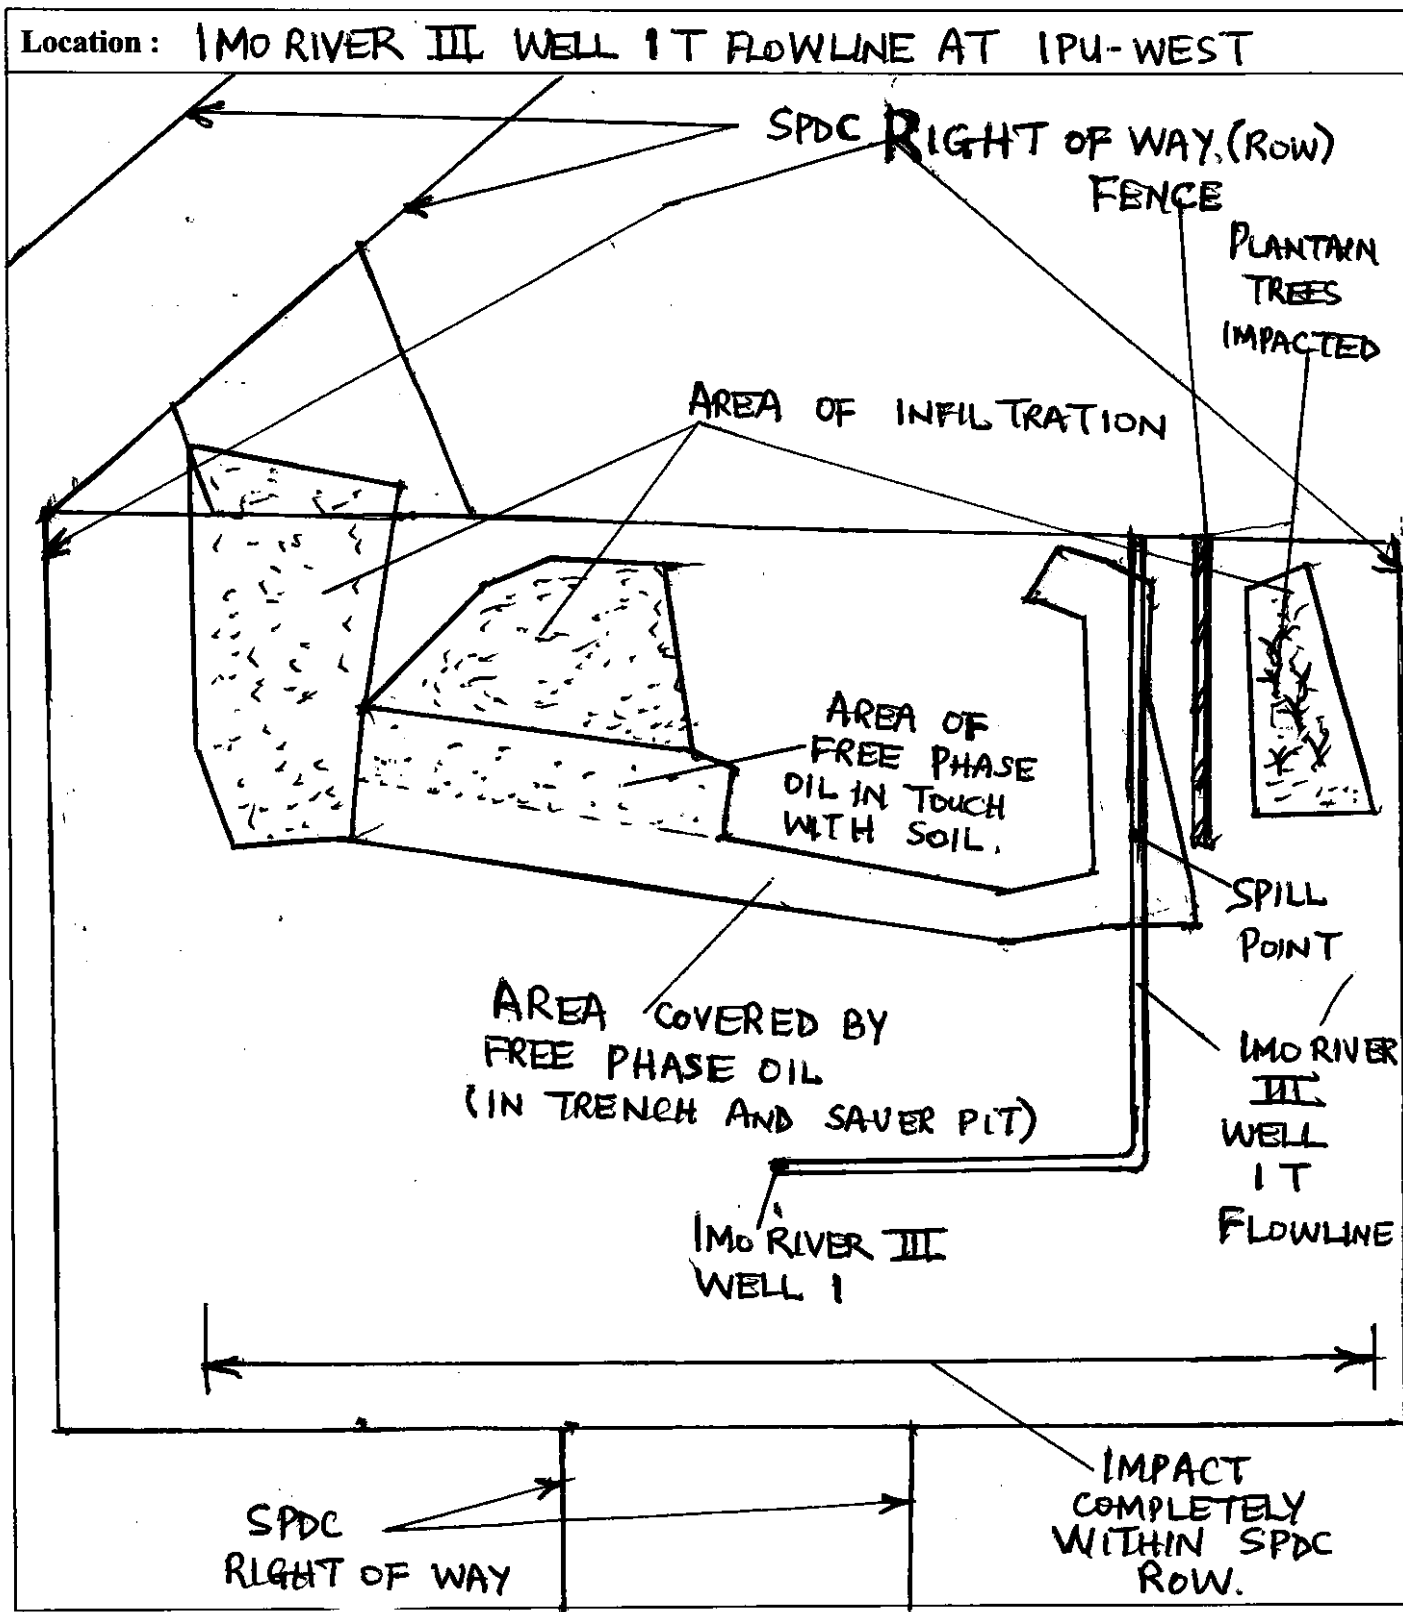 Location : IMO RIVER III WELL 1T FLOWLINE AT IPU-WEST
SPDC RIGHT OF WAY (ROW)
FENCE
PLANTAIN
TREES
IMPACTED
AREA OF INFILTRATION
AREA OF
FREE PHASE
OIL IN TOUCH
WITH SOIL.
SPILL
POINT
AREA COVERED BY
FREE PHASE OIL
(IN TRENCH AND SAVER PIT)
IMO RIVER
III
WELL
1T
FLOWLINE
IMO RIVER III
WELL 1
SPDC
RIGHT OF WAY
IMPACT
COMPLETELY
WITHIN SPDC
ROW.